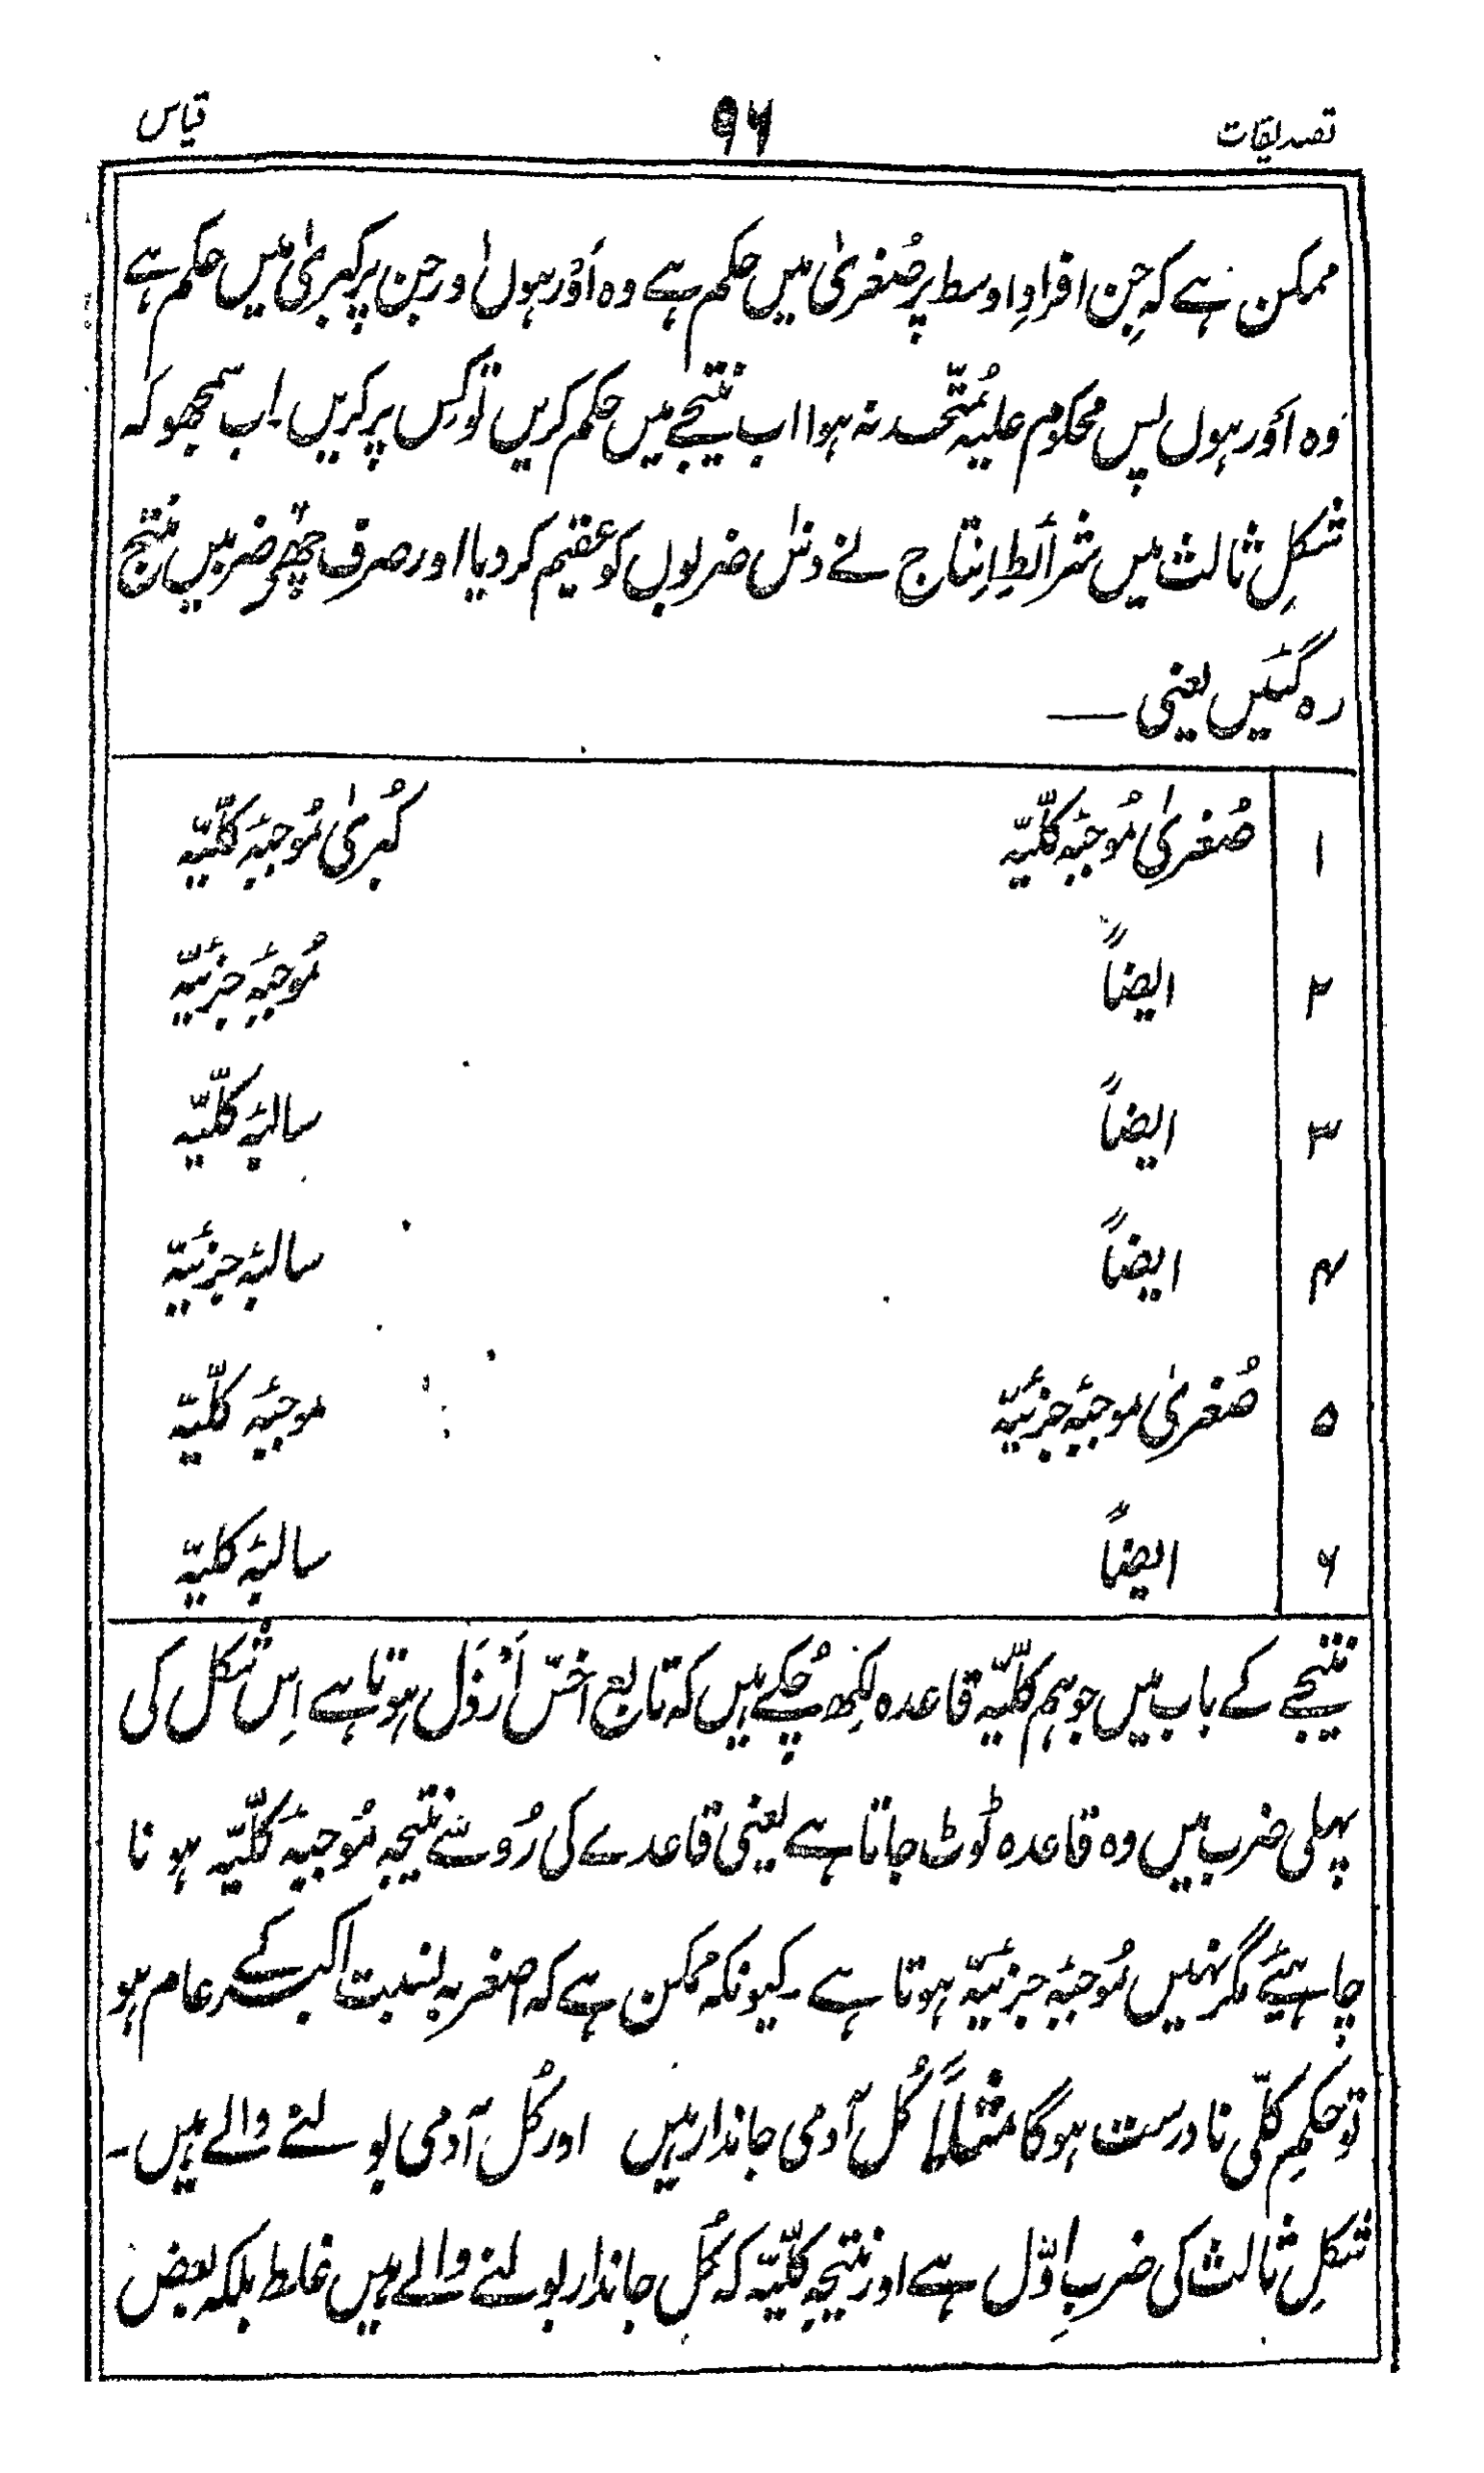 تصدیقات ۹۶ قیاس
ممکن ہے کہ جِن افرادِ اوسط پر صُغریٰ میں حکم ہے وہ اَور ہوں اور جن پر کبریٰ میں حکم ہے
وہ اَور ہوں پس محکوم علیہ مُتّحد نہ ہوا اب نتیجے میں حکم کریں تو کِس پر کریں۔ اب سمجھو کہ
شکلِ ثالث میں شرائطِ اِنتاج نے دس ضربوں کو عقیم کر دیا اور صرف چھ ضربیں منتج
رہ گئیں یعنی —
۱ صُغریٰ مُوجبۂ کلّیّہ کُبریٰ مُوجبۂ کلّیّہ
۲ ایضاً مُوجبۂ جزئیّہ
۳ ایضاً سالبۂ کلّیّہ
۴ ایضاً سالبۂ جزئیّہ
۵ صُغریٰ موجبۂ جزئیّہ موجبۂ کلّیّہ
۶ ایضاً سالبۂ کلیّہ
نتیجے کے باب میں جو ہم کلّیّہ قاعدہ لِکھ چُکے ہیں کہ تابع اخسّ اَرْذَل ہوتا ہے اِس شکل کی
پہلی ضرب میں وہ قاعدہ ٹوٹ جاتا ہے یعنی قاعدے کی رُو سے نتیجہ مُوجبۂ کلّیّہ ہونا
چاہیئے مگر نہیں مُوجبۂ جزئیّہ ہوتا ہے۔ کیونکہ ممکن ہے کہ اصغر بہ نسبت اکبر کے عام ہو
تو حکمِ کلّی نادرست ہوگا مثلاً کُل آدمی جاندار ہیں اور کُل آدمی بولنے والے ہیں۔
شکلِ ثالث کی ضربِ اوّل ہے اور نتیجہ کلّیّہ کہ کُل جاندار بولنے والے ہیں غلط بلکہ بعض